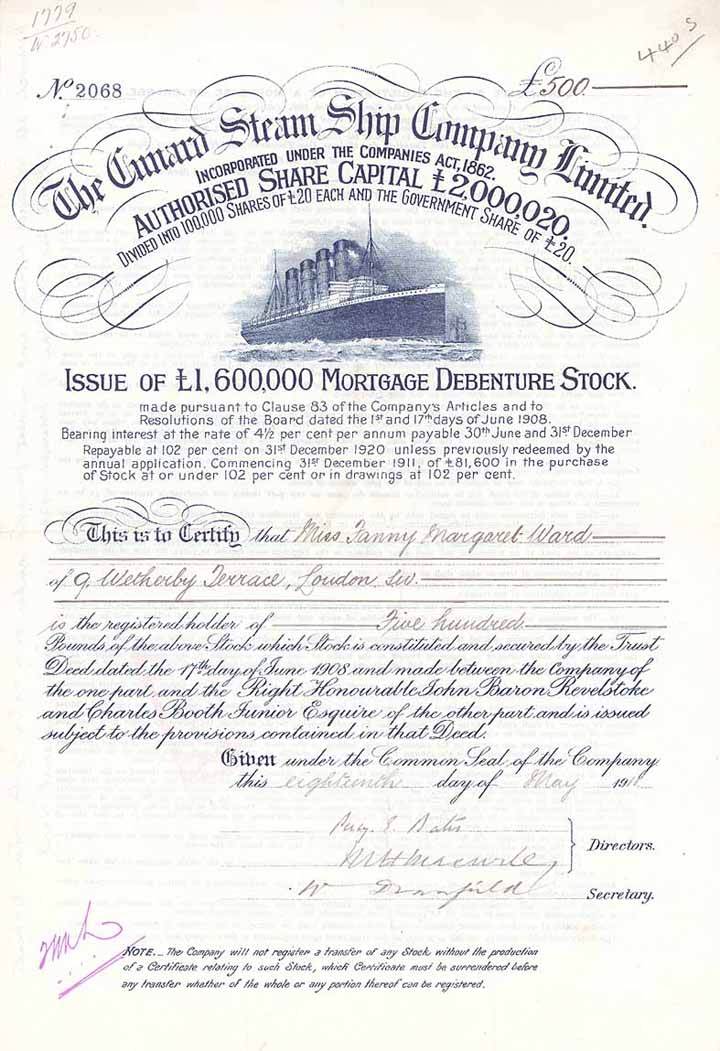 1779
W 2750
4405
No. 2068
£500
The Cunard Steam Ship Company Limited.
INCORPORATED UNDER THE COMPANIES ACT, 1862.
AUTHORISED SHARE CAPITAL £2,000,020.
DIVIDED INTO 100,000 SHARES OF £20 EACH AND THE GOVERNMENT SHARE OF £20.
ISSUE OF £1,600,000 MORTGAGE DEBENTURE STOCK.
made pursuant to Clause 83 of the Company's Articles and to
Resolutions of the Board dated the 1st and 17th days of June 1908.
Bearing interest at the rate of 4½ per cent per annum payable 30th June and 31st December
Repayable at 102 per cent on 31st December 1920 unless previously redeemed by the
annual application. Commencing 31st December 1911, of £81,600 in the purchase
of Stock at or under 102 per cent or in drawings at 102 per cent.
This is to Certify that Miss Fanny Margaret Ward
of 9, Wetherby Terrace, London. S.W.
is the registered holder of Five hundred
Pounds of the above Stock which Stock is constituted and secured by the Trust
Deed dated the 17th day of June 1908 and made between the Company of
the one part and the Right Honourable John Baron Revelstoke
and Charles Booth Junior Esquire of the other part and is issued
subject to the provisions contained in that Deed.
Given under the Common Seal of the Company
this eighteenth day of May 1911
Percy E. Bates
Directors.
Secretary.
NOTE._ The Company will not register a transfer of any Stock without the production
of a Certificate relating to such Stock, which Certificate must be surrendered before
any transfer whether of the whole or any portion thereof can be registered.